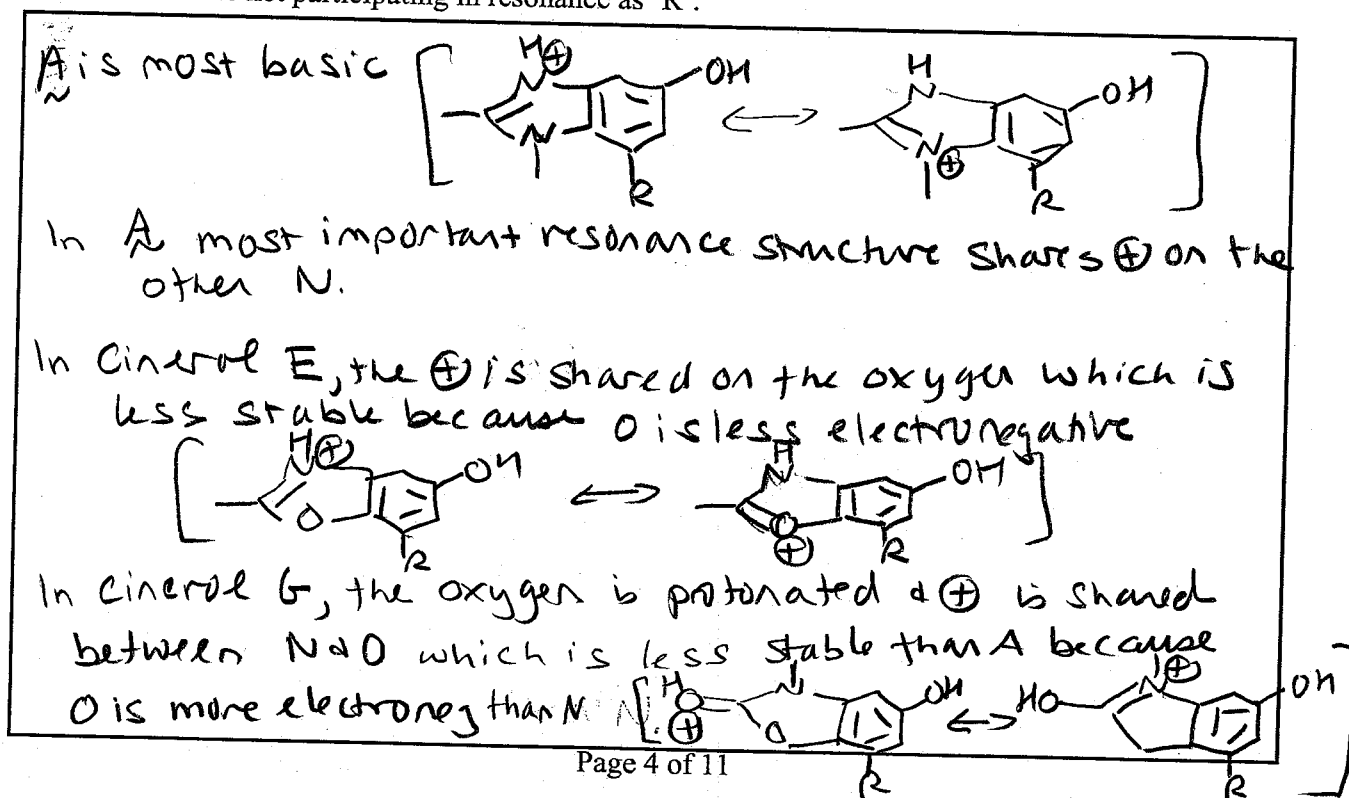 not participating in resonance as "R".
A is most basic
H⊕
N
OH
N
R
H
N
OH
N⊕
R
In A most important resonance structure shares ⊕ on the
other N.
In Cinerol E, the ⊕ is shared on the oxygen which is
less stable because O is less electronegative
H⊕
N
OH
O
R
H
N
OH
O
⊕
R
In Cinerol G, the oxygen is protonated & ⊕ is shared
between N & O which is less stable than A because
O is more electroneg than N.
H
O
⊕
N
O
OH
R
HO
N⊕
OH
R
Page 4 of 11